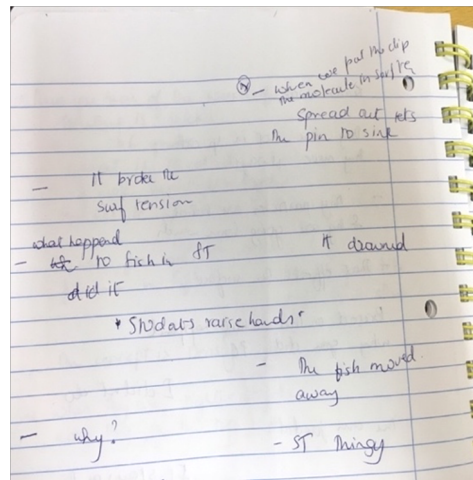 ⓧ - when we put the clip
the molecule in surf te
spread out lets
the pin to sink
- It broke the
surf tension
what happend
- to fish in ST
did it
It drowned
"Students raise hands"
- The fish moved.
away
- why?
- ST thingy